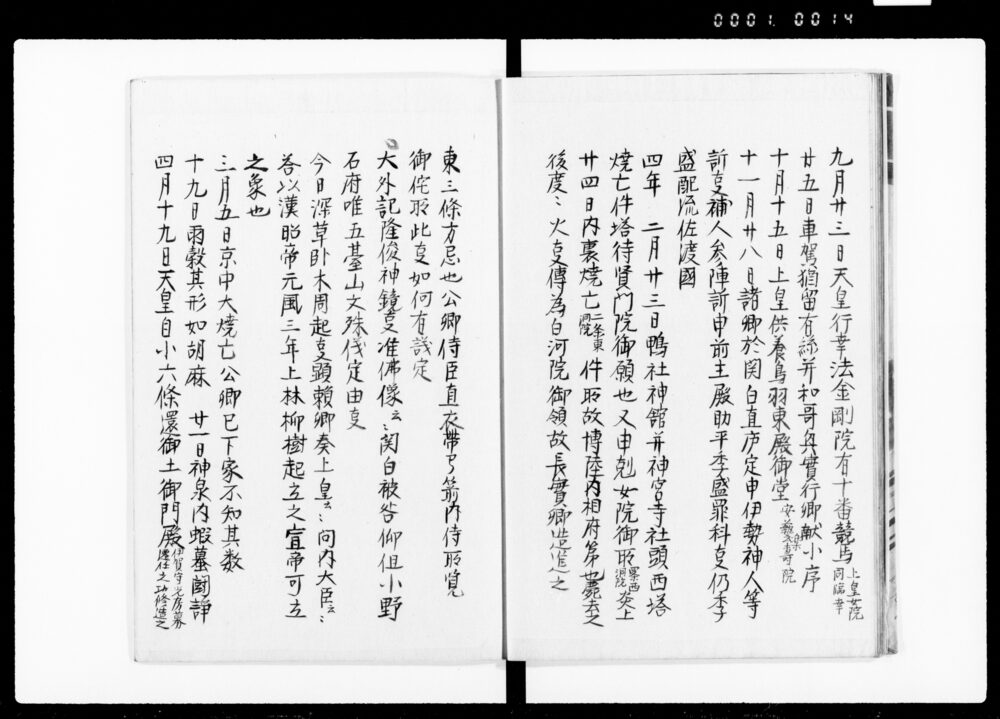 0001 0014
九月廿三日天皇行幸法金剛院有十番競馬 上皇女院同臨幸
廿五日車駕猶留有絲并和哥與實行卿献小序
十月十五日上皇供養鳥羽東殿御堂 安樂壽院
十一月廿八日諸卿於関白直庐定申伊勢神人等
訴支補人参陣訴申前主殿助平季盛罪科支仍季
盛配流佐渡國
四年 二月廿三日鴨社神舘并神宮寺社頭西塔
焼亡件塔待賢門院御願也又申剋女院御所 炎上
廿四日内裏焼亡 二条東洞院 件所故博陸内相府第也薨去之
後度〻火支傳為白河院御領故長實卿造進之
東三條方忌也公卿侍臣直衣帯弓箭内侍所覚
御侘所此支如何有議定
大外記隆俊神鏡支准佛像云〻関白被咎仰但小野
石府唯五臺山文殊儀定由支
今日深草卧木周起支顕頼卿奏上皇云〻問内大臣云〻
答以漢昭帝元風三年上林柳樹起立之宣帝可立
之象也
三月五日京中大焼亡公卿已下家不知其数
十九日雨穀其形如胡麻 廿一日神泉内蝦蟇闘諍
四月十九日天皇自小六條還御土御門殿 伊賀守光房募遷任之功修造之